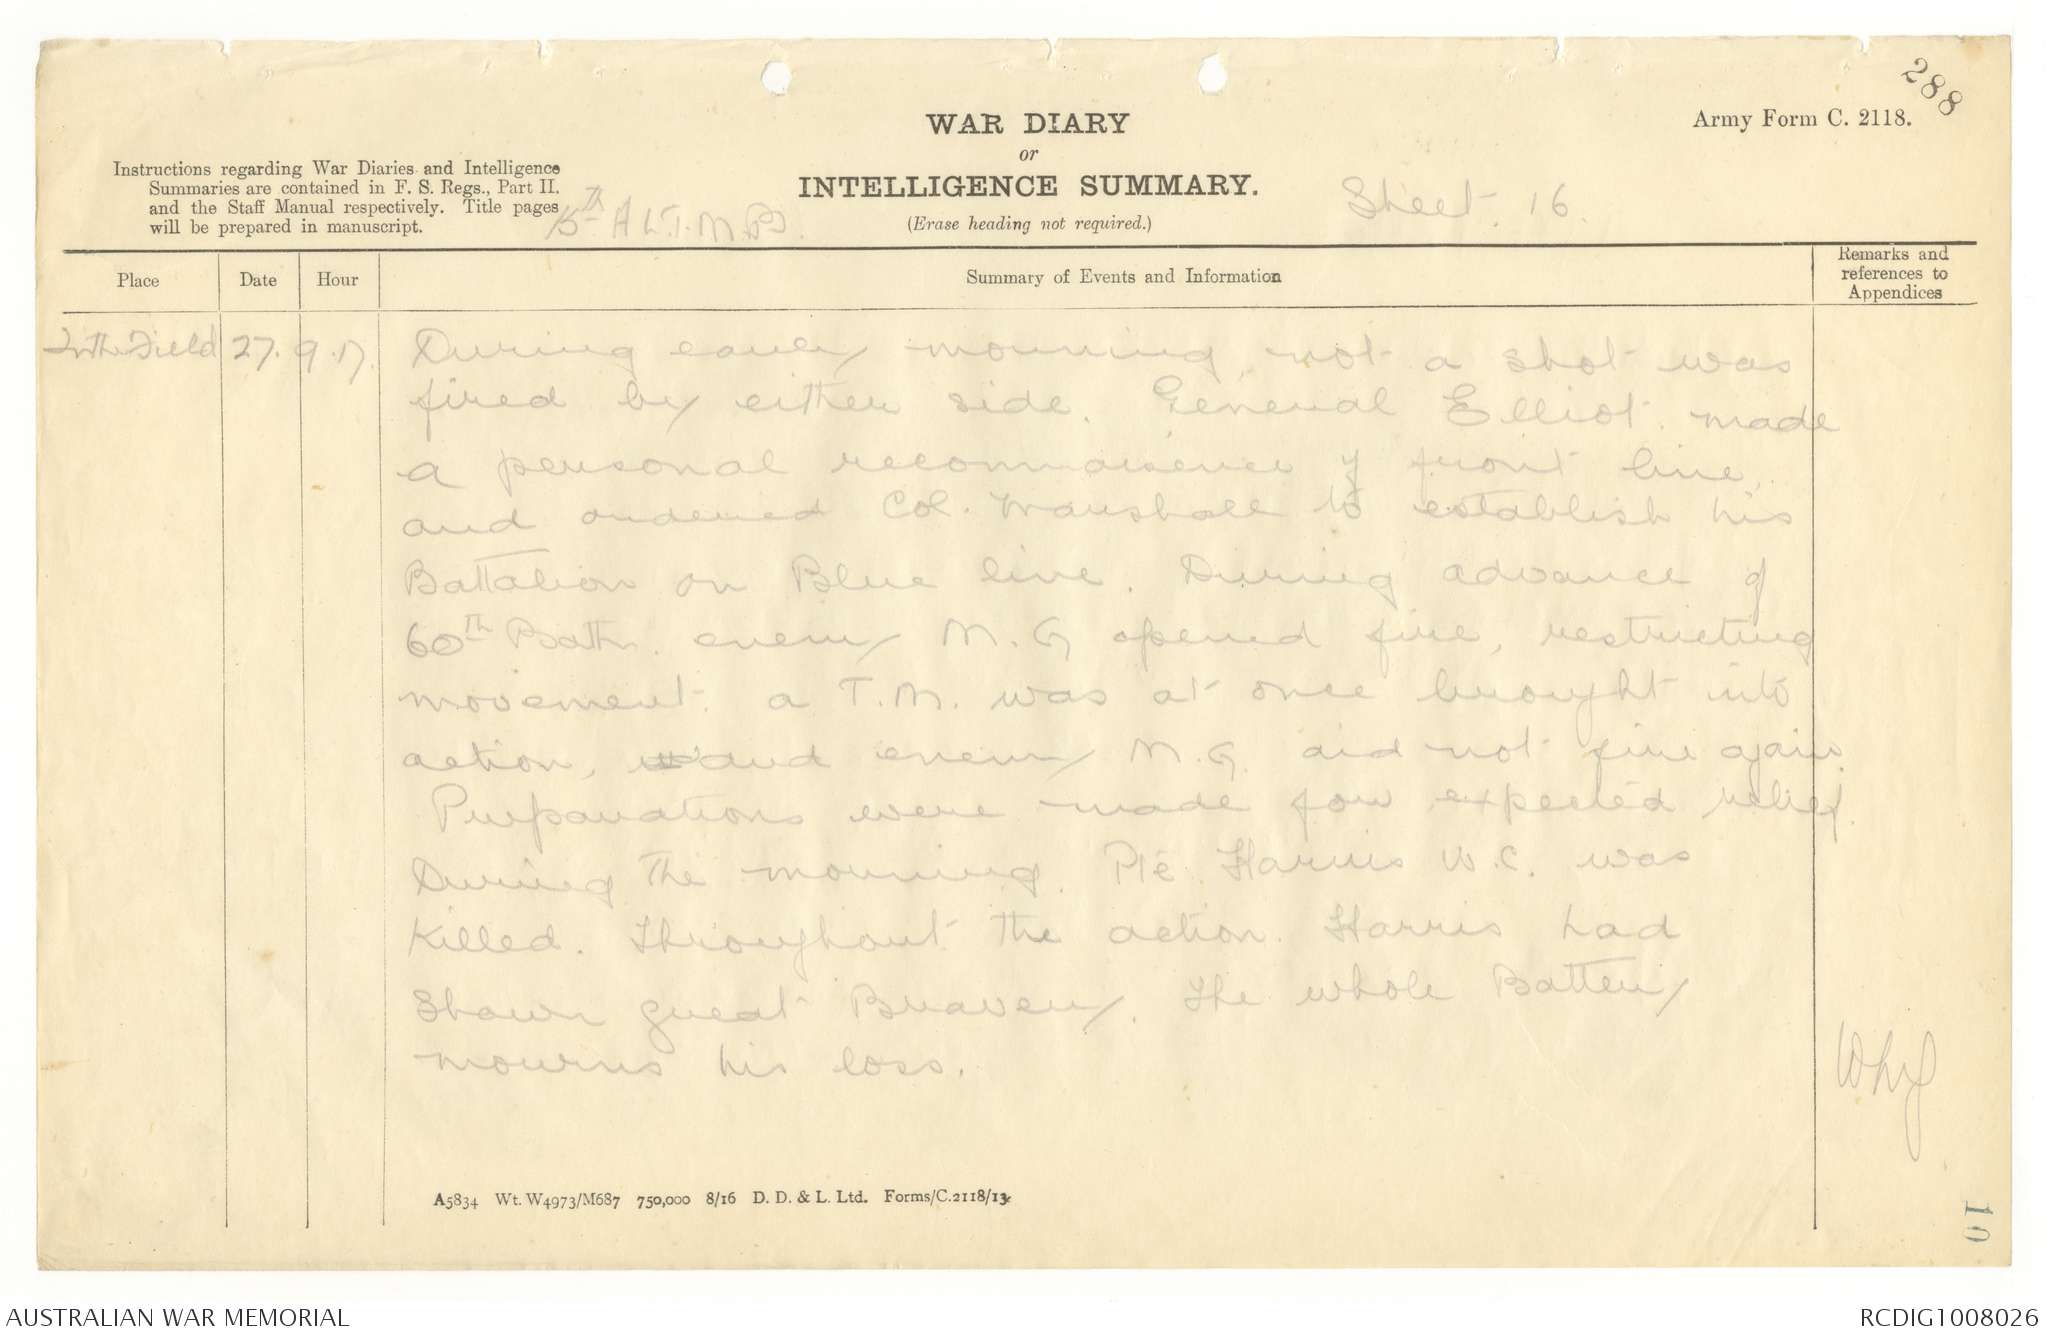 288
Army Form C. 2118.
WAR DIARY
or
INTELLIGENCE SUMMARY.
(Erase heading not required.)
Instructions regarding War Diaries and Intelligence
Summaries are contained in F. S. Regs., Part II.
and the Staff Manual respectively. Title pages
will be prepared in manuscript.
15th A L.T.M.B.
Sheet 16.
Place
Date
Hour
Summary of Events and Information
Remarks and
references to
Appendices
In the Field 27. 9.17. During early morning not a shot was
fired by either side. General Elliot made
a personal reconnaisence of front line,
and ordered Col. Marshall to establish his
Battalion on Blue line. During advance of
60th Battn. enemy M.G opened fire, restricting
movement. a T.M. was at once brought into
action, and enemy M.G. did not fire again.
Preparations were made for expected relief.
During the morning. Pte Harris W.C. was
killed. Throughout the action. Harris had
shown great Bravery. The whole Battery
mourns his loss.
A5834 Wt. W4973/M687 750,000 8/16 D. D. & L. Ltd. Forms/C.2118/13.
10
AUSTRALIAN WAR MEMORIAL
RCDIG1008026